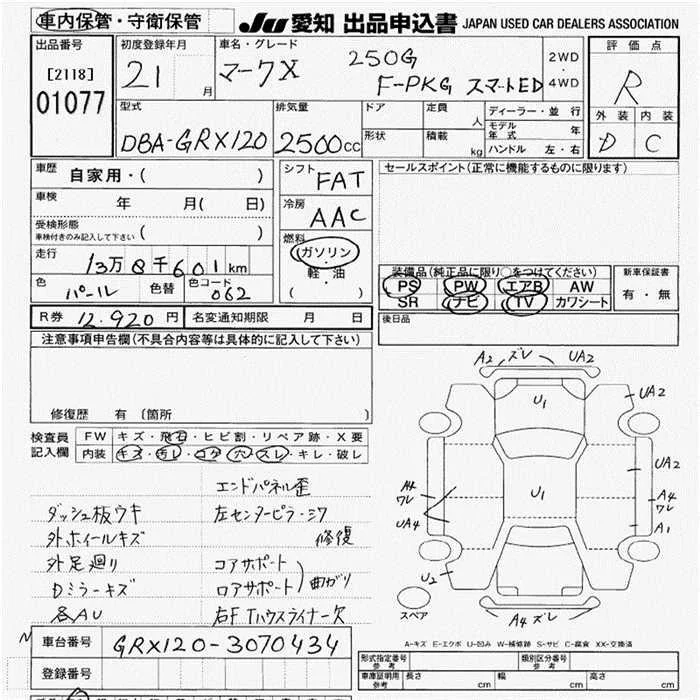 車内保管・守衛保管
JU 愛知 出品申込書 JAPAN USED CAR DEALERS ASSOCIATION
出品番号
[2118]
01077
初度登録年月
21 月
車名・グレード
マークX 250G
F-PKG スマートED
2WD
・
4WD
評価点
R
外装 内装
D C
型式
DBA-GRX120
排気量
2500cc
ドア
定員 人
形状
積載 kg
ディーラー・並行
モデル年式 年
ハンドル 左・右
車歴
自家用・( )
車検 年 月( 日)
受検形態
車検付きのみ記入して下さい ( )
走行
13万8千601km
色 パール 色替 色コード 062
シフト
FAT
冷房
AAC
燃料
ガソリン
・
軽・油
( )
セールスポイント(正常に機能するものに限ります)
装備品(純正品に限り○をつけてください)
PS PW エアB AW
SR ナビ TV カワシート
新車保証書
有・無
R券 12,920円 名変通知期限 月 日
後日品
注意事項申告欄(不具合内容等は具体的に記入して下さい)
修復歴 有 〔箇所 〕
検査員
記入欄
FW キズ・飛石・ヒビ割・リペア跡・X要
内装 キズ・汚レ・コゲ・穴・スレ・キレ・破レ
エンドパネル歪
ダッシュ板ウキ 左センターピラーミワ
外ホイールキズ 修復
外足廻り コアサポート
Dミラーキズ ロアサポート 曲ガリ
各AU 右FTハウスライナー欠
A2 ズレ UA2
U1
UA2
UA2
U1
A4
ワレ
UA4
A4
ワレ
A1
U2
A4 ズレ
スペア
A-キズ E-エクボ U-凹み W-補修跡 S-サビ C-腐食 XX-交換済
車台番号 GRX120-3070434
登録番号
形式指定番号
参考
類別区分番号
参考
車庫証明用
参考
長さ cm 幅 cm 高さ cm